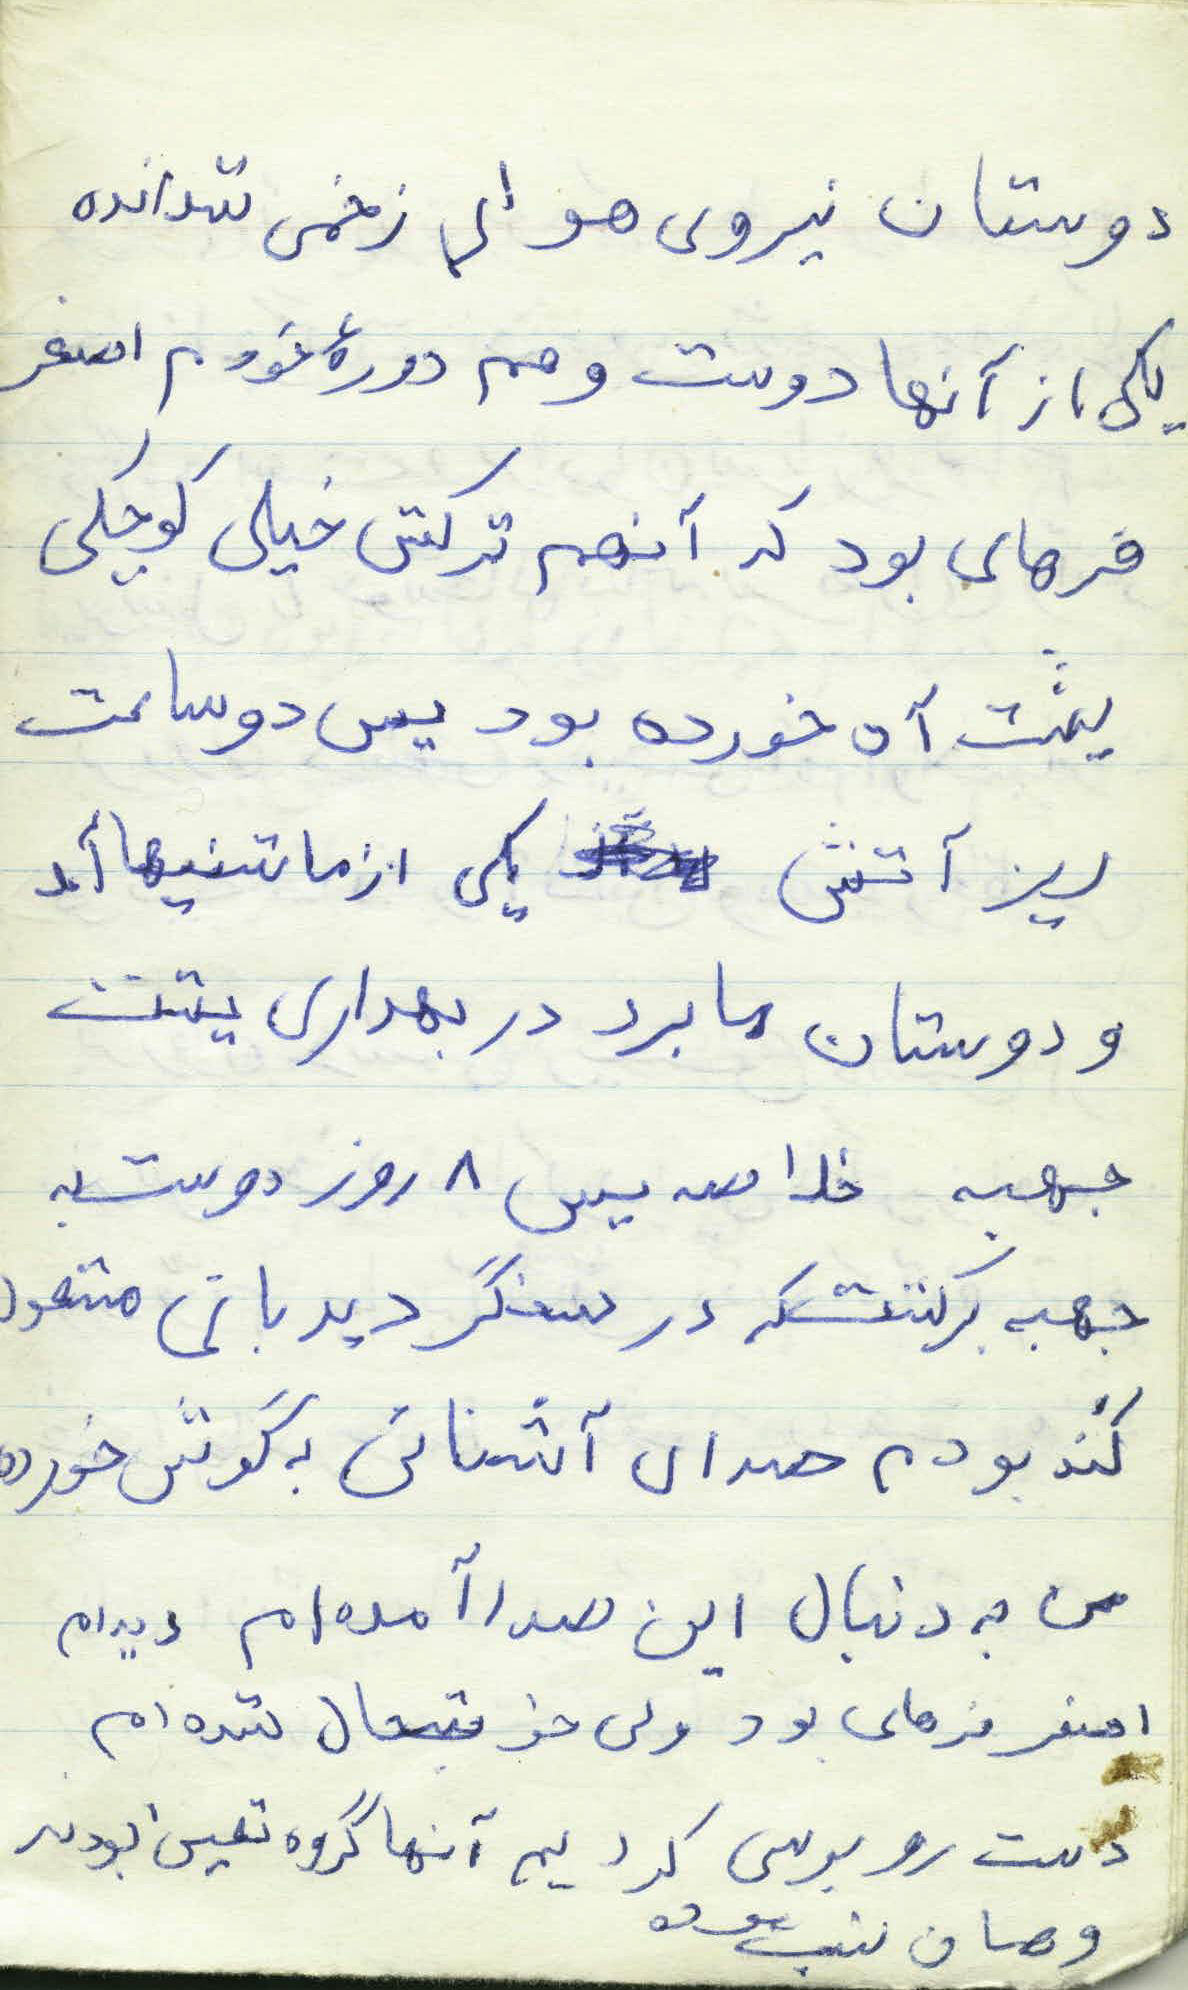 دوستان نیروی هوائی زخمی شدانده
یکی از آنها دوست و هم دورهٔ خودم اصغر
فرهای بود که آنهم ترکش خیلی کوچکی
پشت آن خورده بود پس دو ساعت
زیر آتش یکی از ماشینها آمد
و دوستان ما برد در بهداری پشت
جبهه خلاصه پس ۸ روز دوست به
جبهه برگشت که در سنگر دیدبانی مشغول
کند بودم صدای آشنائی به گوش خورده
من به دنبال این صدا آمده‌ام دیدام
اصغر فرهای بود ولی خوشحال شده‌ام
دست رو بوسی کردیم آنها گروه تعیین بودند
و همان شب بوده